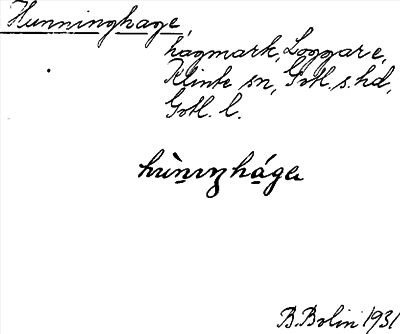 Hunninghage,
hagmark, Loggare,
Klinte sn, Gotl. s. hd,
Gotl. l.
hùnıŋhága
B. Bolin 1931